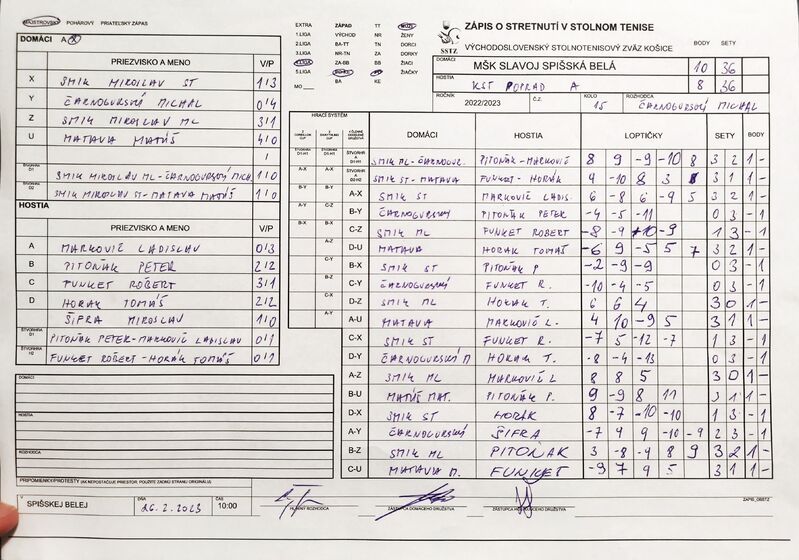 MAJSTROVSKÝ POHÁROVÝ PRIATEĽSKÝ ZÁPAS
DOMÁCI A X
PRIEZVISKO A MENO V/P
X SMIK MIROSLAV ST 1/3
Y ČARNOGURSKÝ MICHAL 0/4
Z SMIK MIROSLAV ML 3/1
U MATAVA MATÚŠ 4/0
/
ŠTVORHRA D1 SMIK MIROSLAV ML-ČARNOGURSKÝ MICH. 1/0
ŠTVORHRA D2 SMIK MIROSLAV ST-MATAVA MATÚŠ 1/0
HOSTIA
PRIEZVISKO A MENO V/P
A MARKOVIČ LADISLAV 0/3
B PITOŇÁK PETER 2/2
C FUNKET ROBERT 3/1
D HORÁK TOMÁŠ 2/2
ŠIFRA MIROSLAV 1/0
ŠTVORHRA PITOŇÁK PETER-MARKOVIČ LADISLAV 0/1
ŠTVORHRA H2 FUNKET ROBERT-HORÁK TOMÁŠ 0/1
DOMÁCI
HOSTIA
ROZHODCA
PRIPOMIENKY/PROTESTY (AK NEPOSTAČUJE PRIESTOR, POUŽITE ZADNÚ STRANU ORIGINÁLU)
V SPIŠSKEJ BELEJ DŇA 26.2.2023 ČAS 10:00
HLAVNÝ ROZHODCA ZÁSTUPCA DOMÁCEHO DRUŽSTVA ZÁSTUPCA HOSŤUJÚCEHO DRUŽSTVA ZÁPIS_OBSTZ
EXTRA ZÁPAD TT MUŽI
1.LIGA VÝCHOD NR ŽENY
2.LIGA BA-TT TN DORCI
3.LIGA NR-TN ZA DORKY
4.LIGA ZA-BB BB ŽIACI
5.LIGA ŽIAČKY
MO BA KE
SSTZ
ZÁPIS O STRETNUTÍ V STOLNOM TENISE
VÝCHODOSLOVENSKÝ STOLNOTENISOVÝ ZVÄZ KOŠICE
BODY SETY
DOMÁCI MŠK SLAVOJ SPIŠSKÁ BELÁ 10 36
HOSTIA KST POPRAD A 8 36
ROČNÍK 2022/2023 Č.Z. KOLO 15 ROZHODCA ČARNOGURSKÝ MICHAL
HRACÍ SYSTÉM
DOMÁCI HOSTIA LOPTIČKY SETY BODY
ŠTVORHRA D1-H1 SMIK ML-ČARNOGUR. PITOŇÁK-MARKOVIČ 8 9 -9 -10 8 3 2 1 -
ŠTVORHRA D2-H2 SMIK ST-MATAVA FUNKET-HORÁK 4 -10 8 3 3 1 1 -
A-X SMIK ST MARKOVIČ LADIS. 6 -8 6 -9 5 3 2 1 -
B-Y ČARNOGURSKÝ PITOŇÁK PETER -4 -5 -11 0 3 - 1
C-Z SMIK ML FUNKET ROBERT -8 -10 -9 1 3 - 1
D-U MATAVA HORÁK TOMÁŠ -6 9 -5 5 7 3 2 1 -
B-X SMIK ST PITOŇÁK P -2 -9 -9 0 3 - 1
C-Y ČARNOGURSKÝ FUNKET R. -10 -4 -5 0 3 - 1
D-Z SMIK ML HORÁK T. 6 6 4 3 0 1 -
A-U MATAVA MARKOVIČ L. 4 10 -9 5 3 1 1 -
C-X SMIK ST FUNKET R. -7 5 -12 -7 1 3 - 1
D-Y ČARNOGURSKÝ M HORÁK T. -8 -4 -13 0 3 - 1
A-Z SMIK ML MARKOVIČ L 8 8 5 3 0 1 -
B-U MATÚŠ MAT. PITOŇÁK P. 9 -9 8 11 3 1 1 -
D-X SMIK ST HORÁK 8 -7 -10 -10 1 3 - 1
A-Y ČARNOGURSKÝ ŠIFRA -7 9 9 -10 -9 2 3 - 1
B-Z SMIK ML PITOŇÁK 3 -8 -4 8 9 3 2 1 -
C-U MATAVA M. FUNKET -9 7 9 5 3 1 1 -